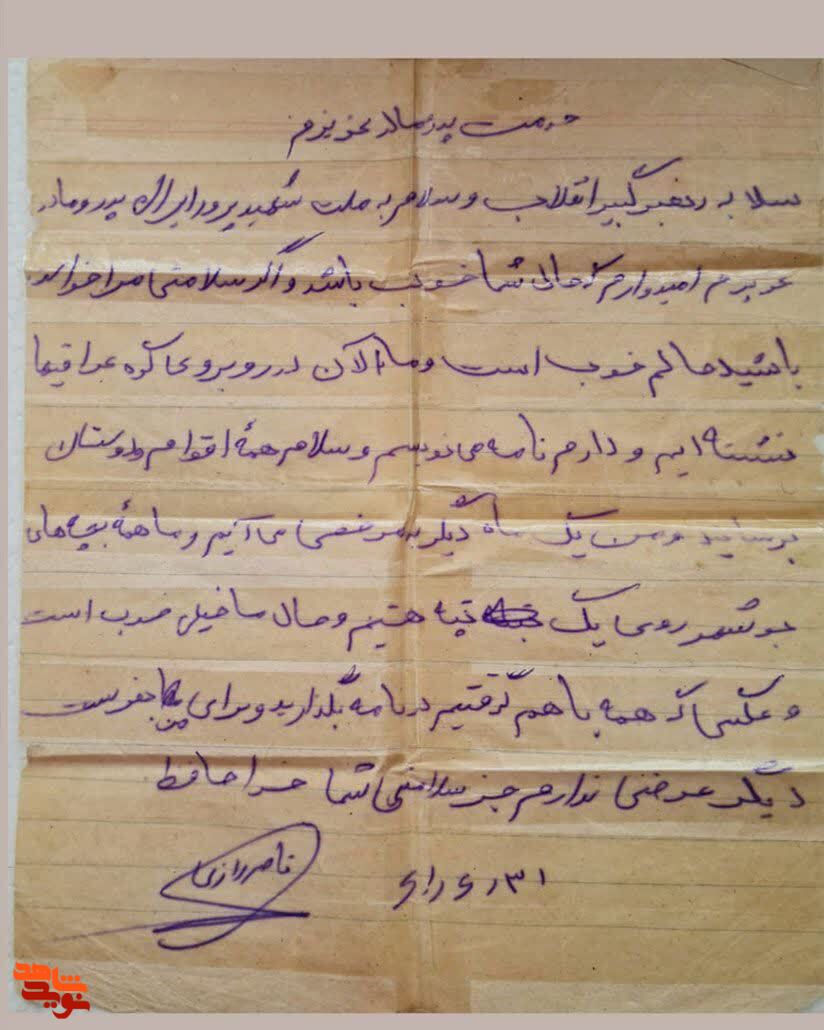 خدمت پدر و مادر عزیزم
سلام به رهبر کبیر انقلاب و سلام به ملت شهیدپرور ایران پدر و مادر
عزیزم امیدوارم که حالی شما خوب باشد و اگر سلامتی مرا خواسته
باشید حالم خوب است و ما الان در روبروی عراقیها
نشسته ایم و دارم نامه می نویسم و سلام همهٔ اقوام و دوستان
برسانید و من یک ماه دیگر به مرخصی می آیم و ما همهٔ بچه های
بوشهر روی یک تپه هستیم و حال ما خیلی خوب است
و عکسی که همه با هم گرفتیم در نامه بگذارید و برای من بفرست
دیگر عرضی ندارم جز سلامتی شما خدا حافظ
ناصر رازی
نوید شاهد